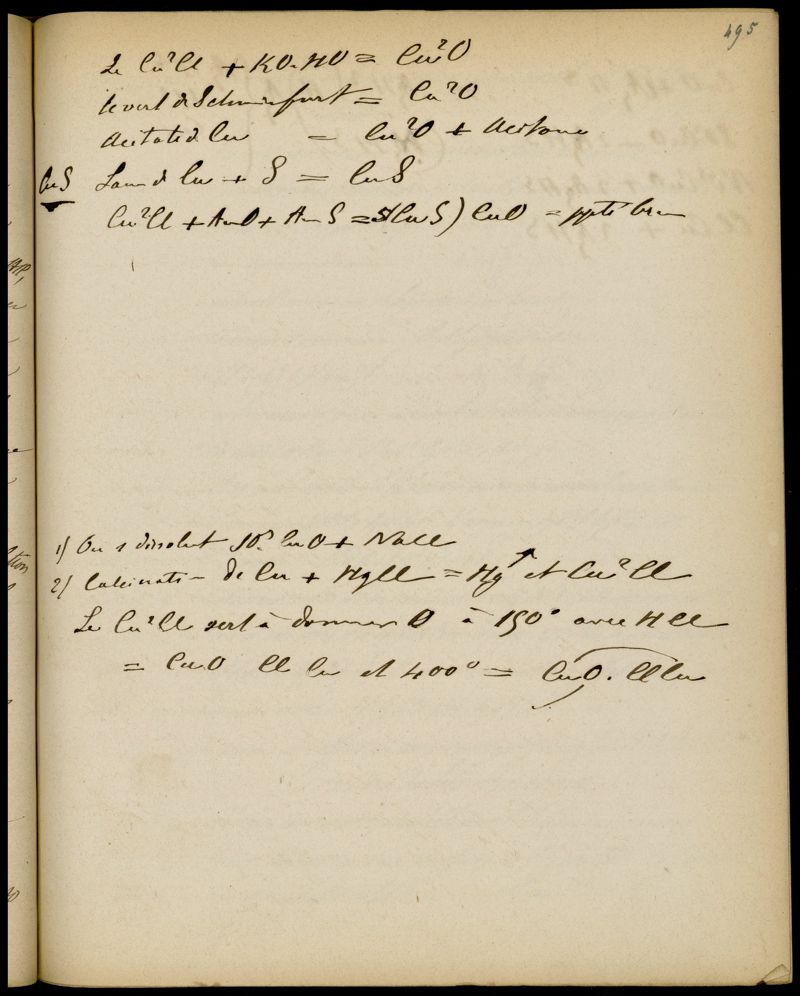 495
Le Cu²Cl + KO.HO = Cu²O
le vert de Schweinfurt = Cu²O
Acetate d. Cu = Cu²O + Acetone
CuS Lam d Cu + S = CuS
Cu²Cl + AmO + Am S = 5(CuS) CuO = ppté brun
1) On dissolut SO³.CuO + NaCl
2) Calcinati- de Cu + HgCl = Hg↑ et Cu²Cl
Le Cu²Cl sert à donner O à 150° avec HCl
= CuO Cl Cu et 400° = CuO. ClCu